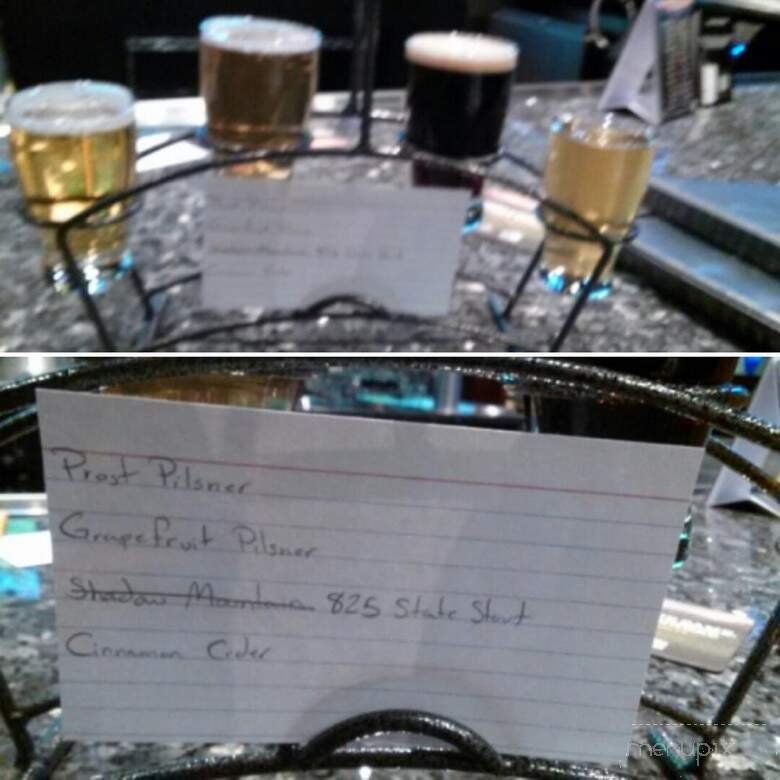 Prost Pilsner
Grapefruit Pilsner
Shadow Mountain 825 State Stout
Cinnamon Cider
menupix